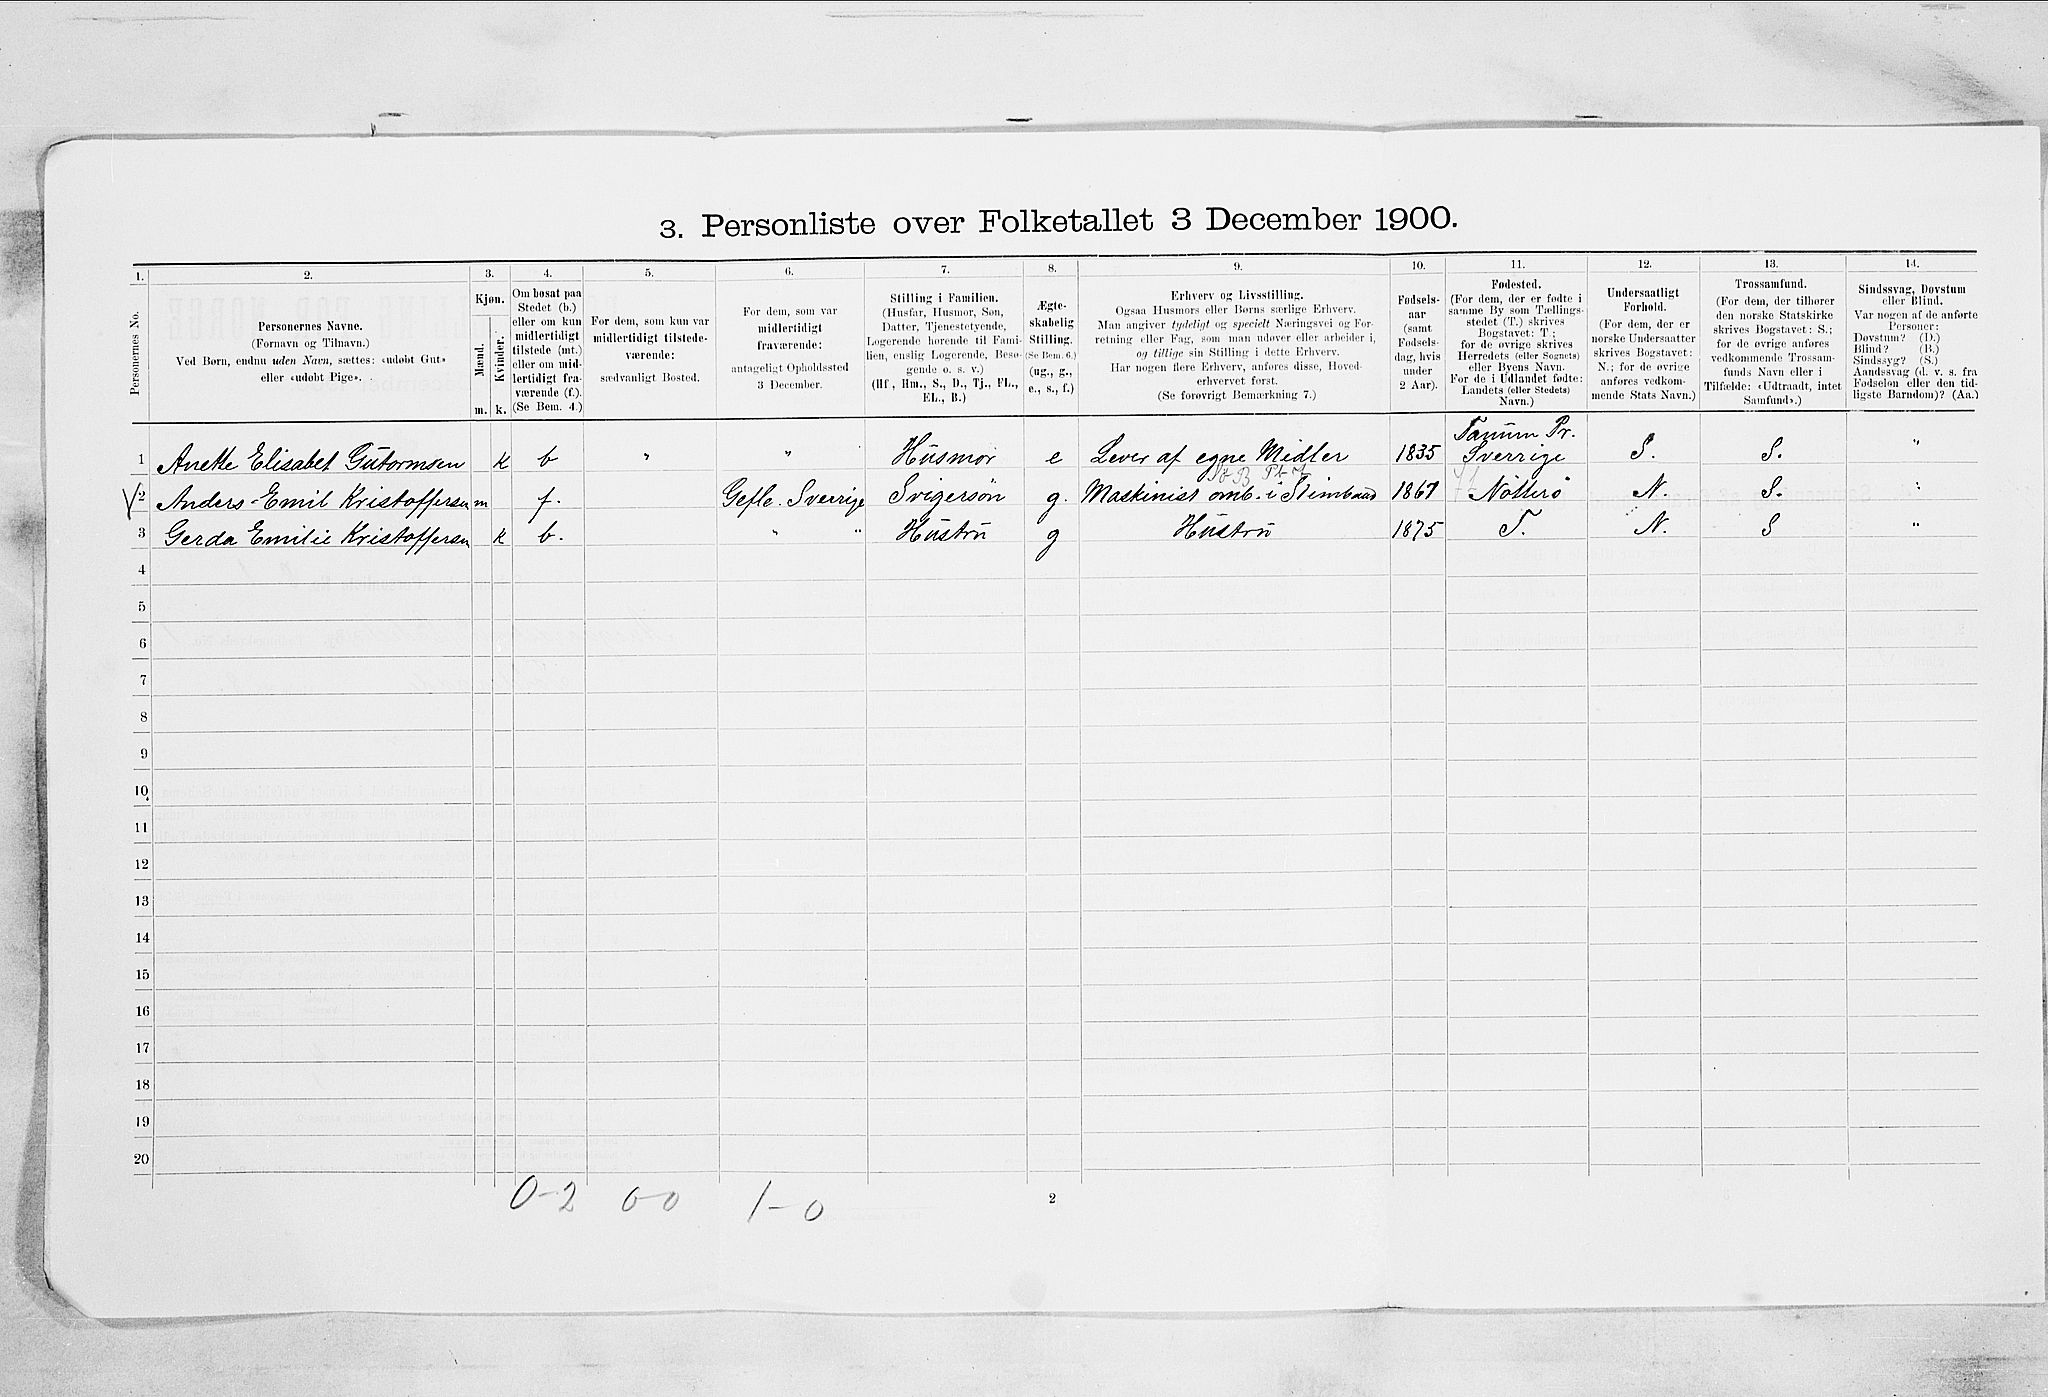 3. Personliste over Folketallet 3 December 1900.
1. 2. 3. 4. 5. 6. 7. 8. 9. 10. 11. 12. 13. 14.
Personernes No.
Personernes Navne.
(Fornavn og Tilnavn.)
Ved Børn, endnu uden Navn, sættes: «udøbt Gut»
eller «udøbt Pige».
Kjøn.
Mænd.
Kvinder.
m. k.
Om bosat paa
Stedet (b.)
eller om kun
midlertidigt
tilstede (mt.)
eller om mid-
lertidigt fra-
værende (f.).
(Se Bem. 4.)
For dem, som kun var
midlertidigt tilstede-
værende:
sædvanligt Bosted.
For dem, som var
midlertidigt
fraværende:
antageligt Opholdssted
3 December.
Stilling i Familien.
(Husfar, Husmor, Søn,
Datter, Tjenestetyende,
Logerende hørende til Fami-
lien, enslig Logerende, Besø-
gende o. s. v.)
(Hf., Hm., S., D., Tj., FL.,
EL., B.)
Ægte-
skabelig
Stilling.
(Se Bem. 6.)
(ug., g.,
e., s., f.)
Erhverv og Livsstilling.
Ogsaa Husmors eller Børns særlige Erhverv.
Man angiver tydeligt og specielt Næringsvei og For-
retning eller Fag, som man udøver eller arbeider i,
og tillige sin Stilling i dette Erhverv.
Har nogen flere Erhverv, anføres disse, Hoved-
erhvervet først.
(Se forøvrigt Bemærkning 7.)
Fødsels-
aar
(samt
Fødsels-
dag, hvis
under
2 Aar).
Fødested.
(For dem, der er fødte i
samme By som Tællings-
stedet (T.) skrives
Bogstavet: T.;
for de øvrige skrives
Herredets (eller Sognets)
eller Byens Navn.
For de i Udlandet fødte:
Landets (eller Stedets)
Navn.)
Undersaatligt
Forhold.
(For dem, der er
norske Undersaatter
skrives Bogstavet:
N.; for de øvrige
anføres vedkom-
mende Stats Navn.)
Trossamfund.
(For dem, der tilhører
den norske Statskirke
skrives Bogstavet: S.;
for de øvrige anføres
vedkommende Trossam-
funds Navn eller i
Tilfælde: «Udtraadt, intet
Samfund».)
Sindssvag, Døvstum
eller Blind.
Var nogen af de anførte
Personer:
Døvstum? (D.)
Blind? (B.)
Sindssyg? (S.)
Aandssvag (d. v. s. fra
Fødselen eller den tid-
ligste Barndom)? (Aa.)
Tanum Pr.
1 Anette Elisabet Gutormsen k b " " Husmor e Lever af egne Midler 1835 Sverrige S. S. "
2 Anders Emil Kristoffersen m f. Gefle. Sverrige Svigersøn g. Maskinist omb. i Stimbaad 1867 Nötterö N. S. "
3 Gerda Emilie Kristoffersen k b. " " Hustru g Hustru 1875 T. N. S "
4
5
6
7
8
9
10
11
12
13
14
15
16
17
18
19
20
0-2 0-0 1-0
2